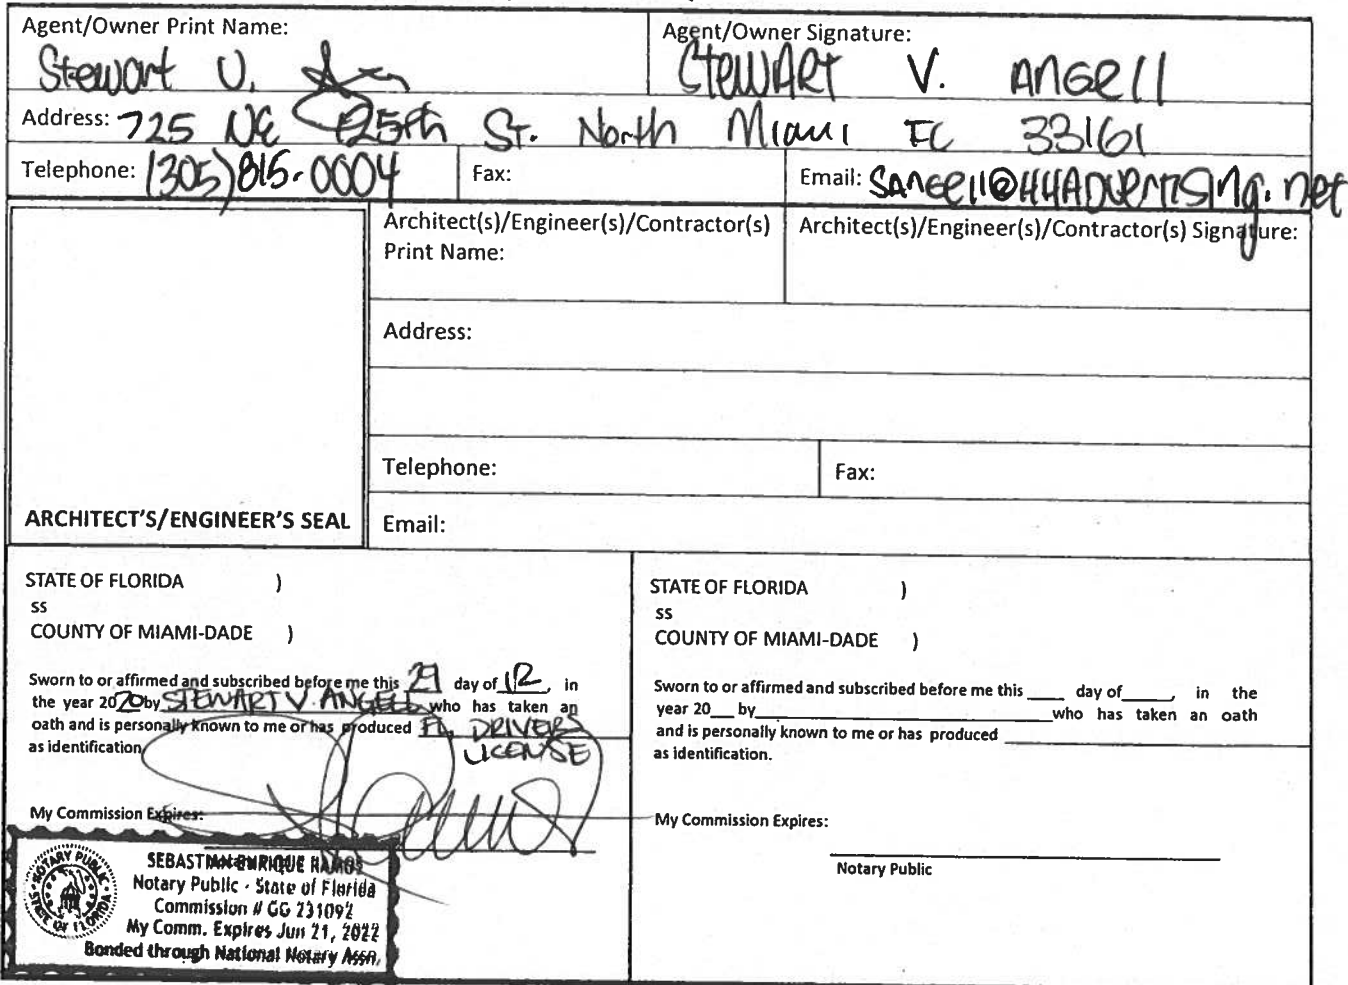 Agent/Owner Print Name:
Stewart V.
Agent/Owner Signature:
Stewart V. Angell
Address: 725 NE 125th St. North Miami FL 33161
Telephone: (305) 815-0004
Fax:
Email: SANGell@HHADVERTISING.net
Architect(s)/Engineer(s)/Contractor(s)
Print Name:
Architect(s)/Engineer(s)/Contractor(s) Signature:
Address:
Telephone:
Fax:
ARCHITECT'S/ENGINEER'S SEAL
Email:
STATE OF FLORIDA )
ss
COUNTY OF MIAMI-DADE )
Sworn to or affirmed and subscribed before me this 29 day of 12, in
the year 2020 by STEWART V. ANGELL who has taken an
oath and is personally known to me or has produced FL. DRIVERS
LICENSE
as identification.
My Commission Expires:
Notary Public
SEBASTIAN ENRIQUE RAMOS
Notary Public - State of Florida
Commission # GG 231092
My Comm. Expires Jun 21, 2022
Bonded through National Notary Assn.
NOTARY PUBLIC
STATE OF FLORIDA
STATE OF FLORIDA )
ss
COUNTY OF MIAMI-DADE )
Sworn to or affirmed and subscribed before me this ____ day of _____, in the
year 20__ by______________________who has taken an oath
and is personally known to me or has produced ______________________
as identification.
My Commission Expires:
Notary Public